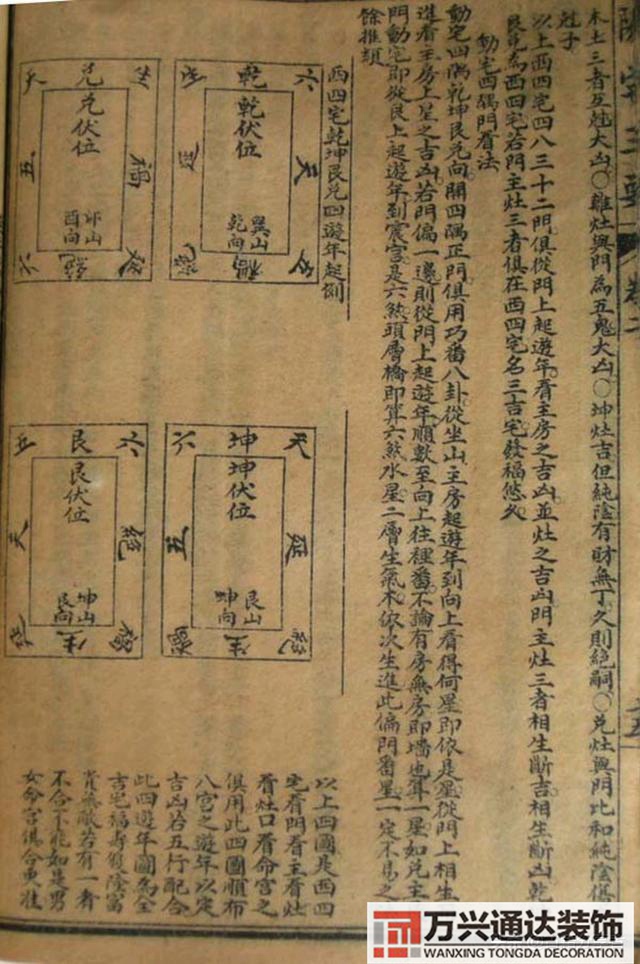 陽宅三要 卷二
木土三者互尅大凶〇離灶與門為五鬼大凶〇坤灶吉但純陰有財無丁久則絕嗣〇兌灶與門比和純陰傷
尅子
以上西四宅四八三十二門俱從門上起遊年看主房之吉凶並灶之吉凶門主灶三者相生斷吉相生斷凶乾
艮兌為西四宅若門主灶三者俱在西四宅名三吉宅發福悠久
動宅四隅門看法
動宅四隅乾坤艮兌向開四隅正門俱用巧番八卦從坐山主房起遊年到向上看得何星即依是星從門上相生
進看主房上星之吉凶若門偏一邊則從門上起遊年順數至向上往裡番不論有房無房即墻也算一星如兌主
門動宅即從艮上起遊年到震宮是六煞頭層橋即算六煞水星二層生氣木依次生進此偏門番星一定不易之
餘推類
西四宅乾坤艮兌四遊年起例
六 乾 五
天 乾伏位
巽山
乾向
生 兌 天
禍 兌伏位 五
卯山
酉向
延 絕 六
天 坤 六
延 坤伏位 五
艮山
坤向
絕 生 禍
六 艮 五
絕 艮伏位 天
坤山
艮向
禍 生 延
以上四圖是西四
宅看門看主看灶
看灶口看命宮之
俱用此四圖順布
八宮之遊年以定
吉凶若五行配合
此四遊年圖為全
吉宅福壽雙隆富
貴無敵若有一者
不合不能如是男
女命宮俱合更准
万兴通达装饰
WANXING TONGDA DECORATION